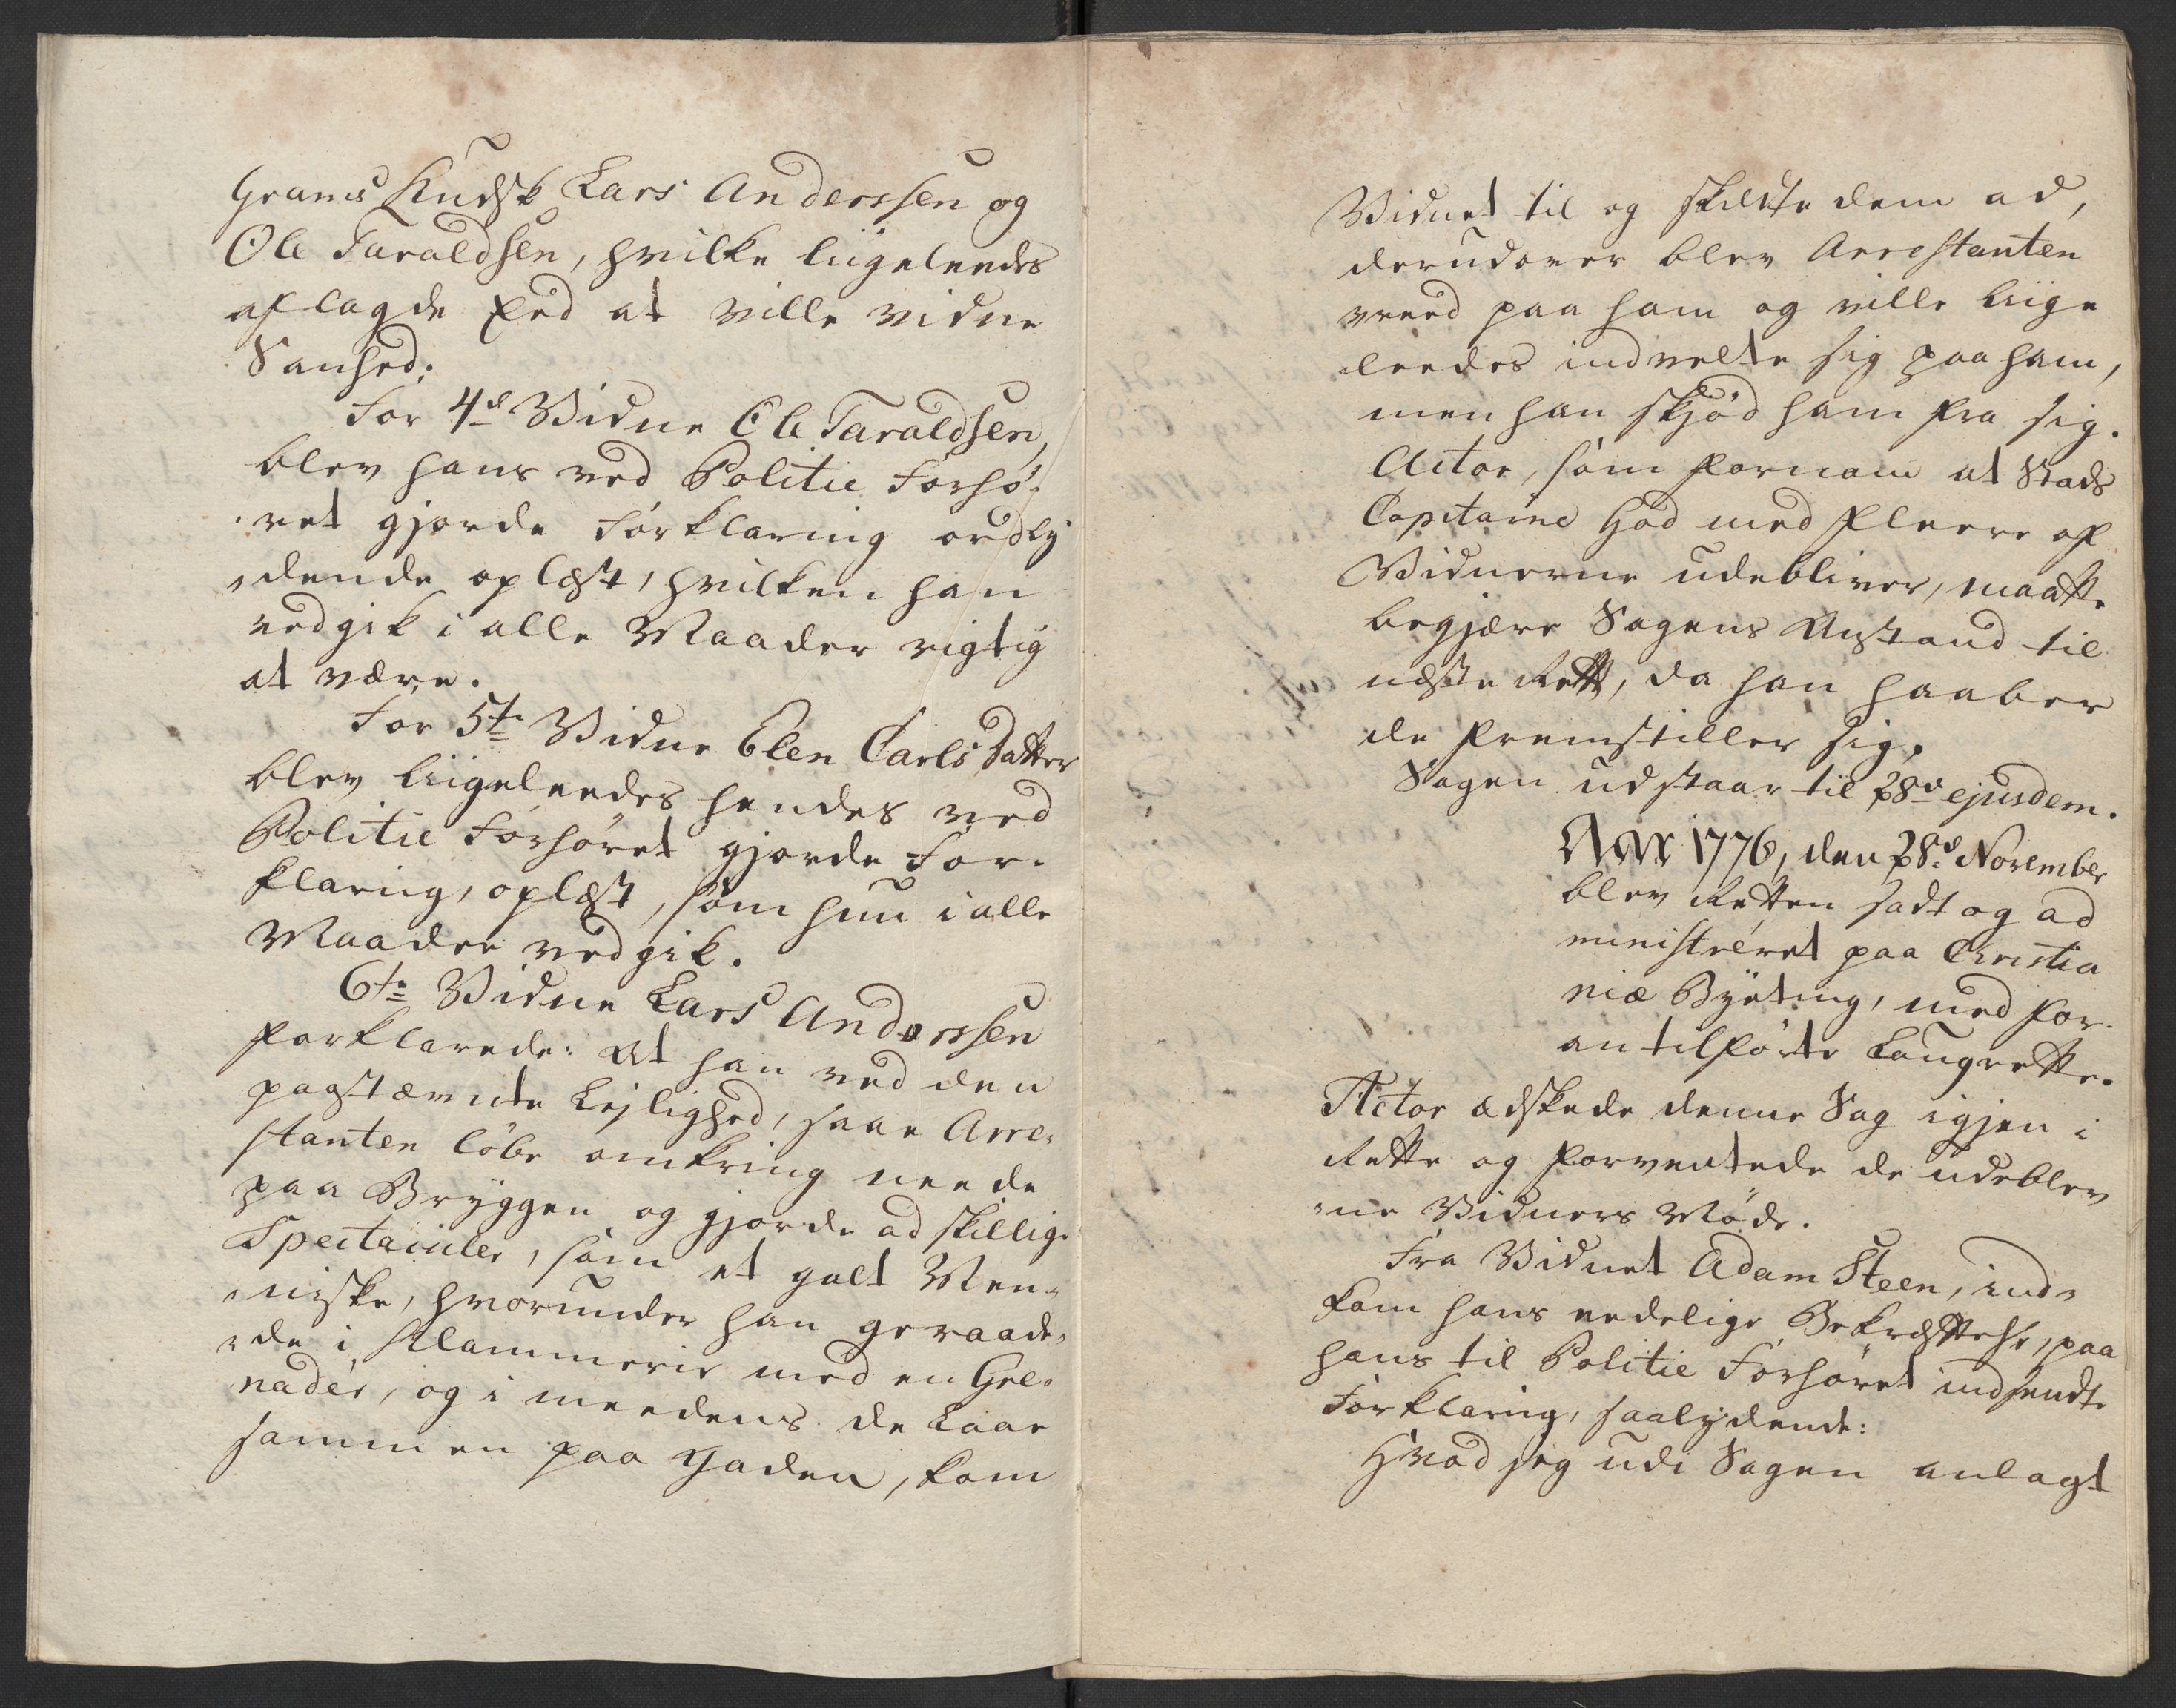 Grams Kudsk Lars Anderssen og
Ole Taraldsen, hvilke liigeleedes
aflagde Eed at ville vidne
Sanhed;
For 4d Vidne Ole Taraldsen,
blev hans ved Politie Forhø-
ret gjorde Forklaring ordly
dende oplæst, hvilken han
vedgik i alle Maader rigtig
at være.
For 5te Vidne Elen Carls datter
blev liigeleedes hendes ved
Politie Forhøret gjorde For-
klaring, oplæst, som hun i alle
Maader vedgik.
6te Vidne Lars Anderssen
forklarede: At han ved den
paastævnte Lejlighed, saae Arre-
stanten løbe omkring neede
paa Bryggen og gjorde adskillige
Spectaculer, som et galt Men-
niske, hvorunder han geraade-
de i Klammerie med en Gre-
nadér, og i meedens de Laae
sammen paa Gaden, kom
Vidnet til og skildte dem ad,
derudover blev Arrestanten
vreed paa ham og ville liige
leedes indvelte sig paa ham,
men han skjød ham fra sig.
Actor, som fornam at Stads
Capitaine Hød med fleere af
Vidnerne udebliver, maatte
begjære Sagens Anstand til
næste Rett, da han haaber
de fremstiller sig.
Sagen udstaar til 28d ejusdem.
Anno 1776, den 28d November
blev Retten sadt og ad
ministreret paa Christia
niæ Byeting, med for-
an tilførte Laugrette.
Actor ædskede denne Sag igjen i
Rette og forventede de udeblev
ne Vidners Møde.
Fra Vidnet Adam Steen, ind-
kom hans eedelige Bekræftelse, paa
hans til Politie Forhøret indsendte
Forklaring, saalydende:
Hvad jeg udi Sagen anlagt